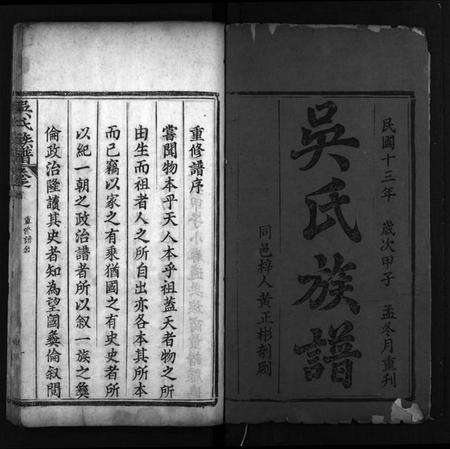 民國十三年 歲次甲子 孟冬月重刊
吳氏族譜
同邑梓人黃正彬刻刷
重修譜序
嘗聞物本乎天人本乎祖蓋天者物之所
由生而祖者人之所自出亦各本其所本
而已竊以家之有乘猶國之有史史者所
以紀一朝之政治譜者所以叙一族之彝
倫政治隆讀其史者知為望國彝倫叙閱
吳氏族譜
重修譜序